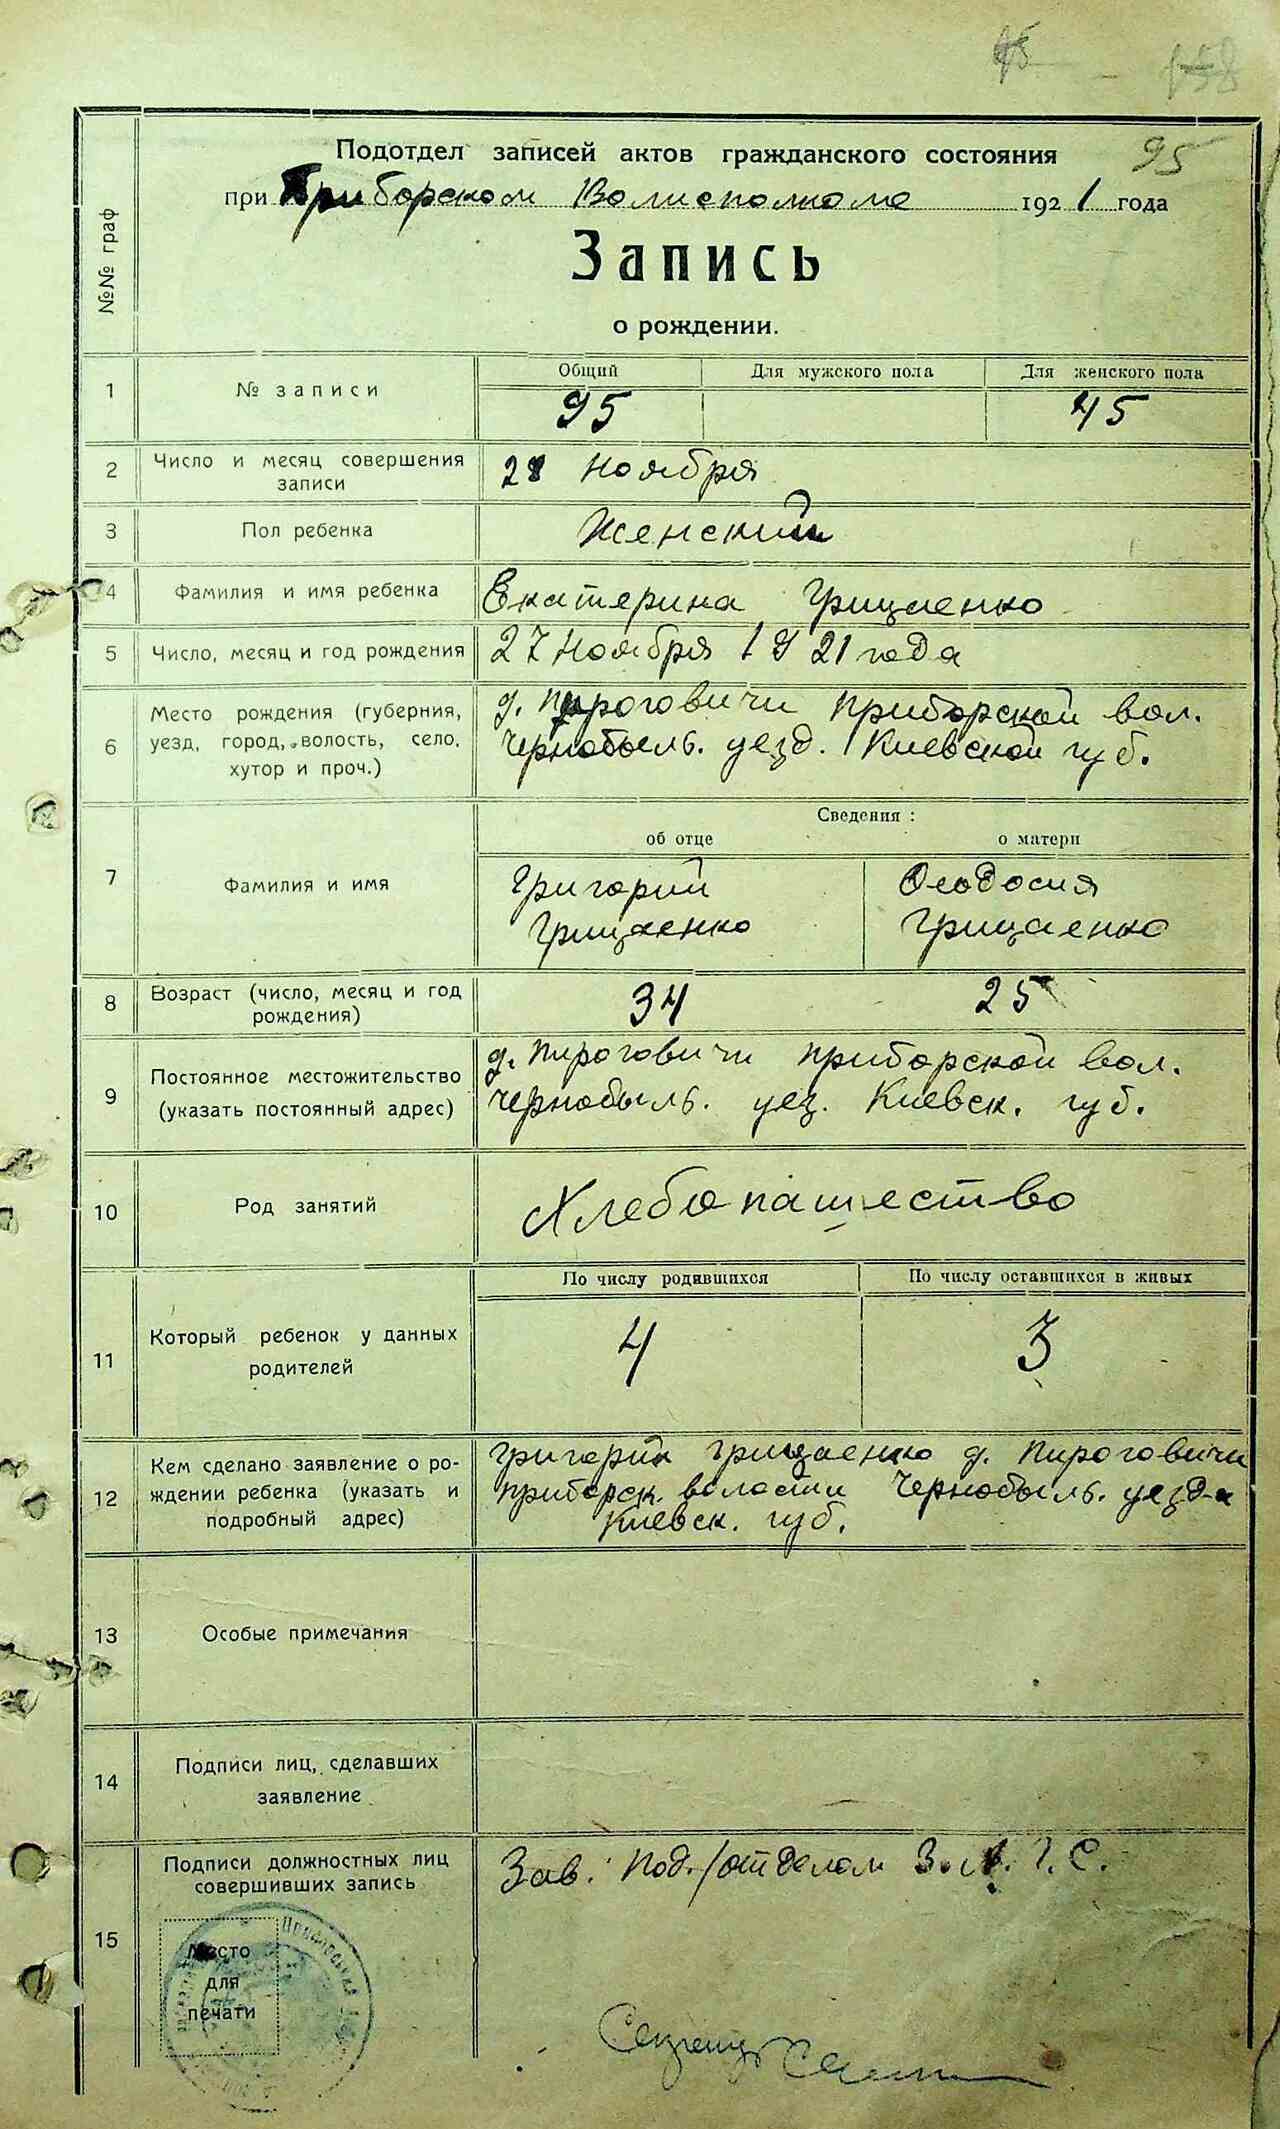 95
Подотдел записей актов гражданского состояния
при Приборском Волисполкоме 1921 года
№№ граф
Запись
о рождении.
1 № записи Общий Для мужского пола Для женского пола
95 45
2 Число и месяц совершения записи 28 Ноября
3 Пол ребенка Женский
4 Фамилия и имя ребенка Екатерина Грицаенко
5 Число, месяц и год рождения 27 Ноября 1921 года
6 Место рождения (губерния, уезд, город, волость, село, хутор и проч.)
д. Пироговичи Приборской вол.
Чернобыль. уезд. Киевской губ.
Сведения :
об отце о матери
7 Фамилия и имя
Григорий Феодосия
Грицаенко Грицаенко
8 Возраст (число, месяц и год рождения) 34 25
9 Постоянное местожительство (указать постоянный адрес)
д. Пироговичи Приборской вол.
Чернобыль. уез. Киевск. губ.
10 Род занятий Хлебопашество
По числу родившихся По числу оставшихся в живых
11 Который ребенок у данных родителей 4 3
12 Кем сделано заявление о рождении ребенка (указать и подробный адрес)
Григорий Грицаенко д. Пироговичи
Приборск. волости Чернобыль. уезда
Киевск. губ.
13 Особые примечания
14 Подписи лиц, сделавших заявление
15 Подписи должностных лиц совершивших запись
Зав. Под./отделом З.А.Г.С.
Место
для
печати